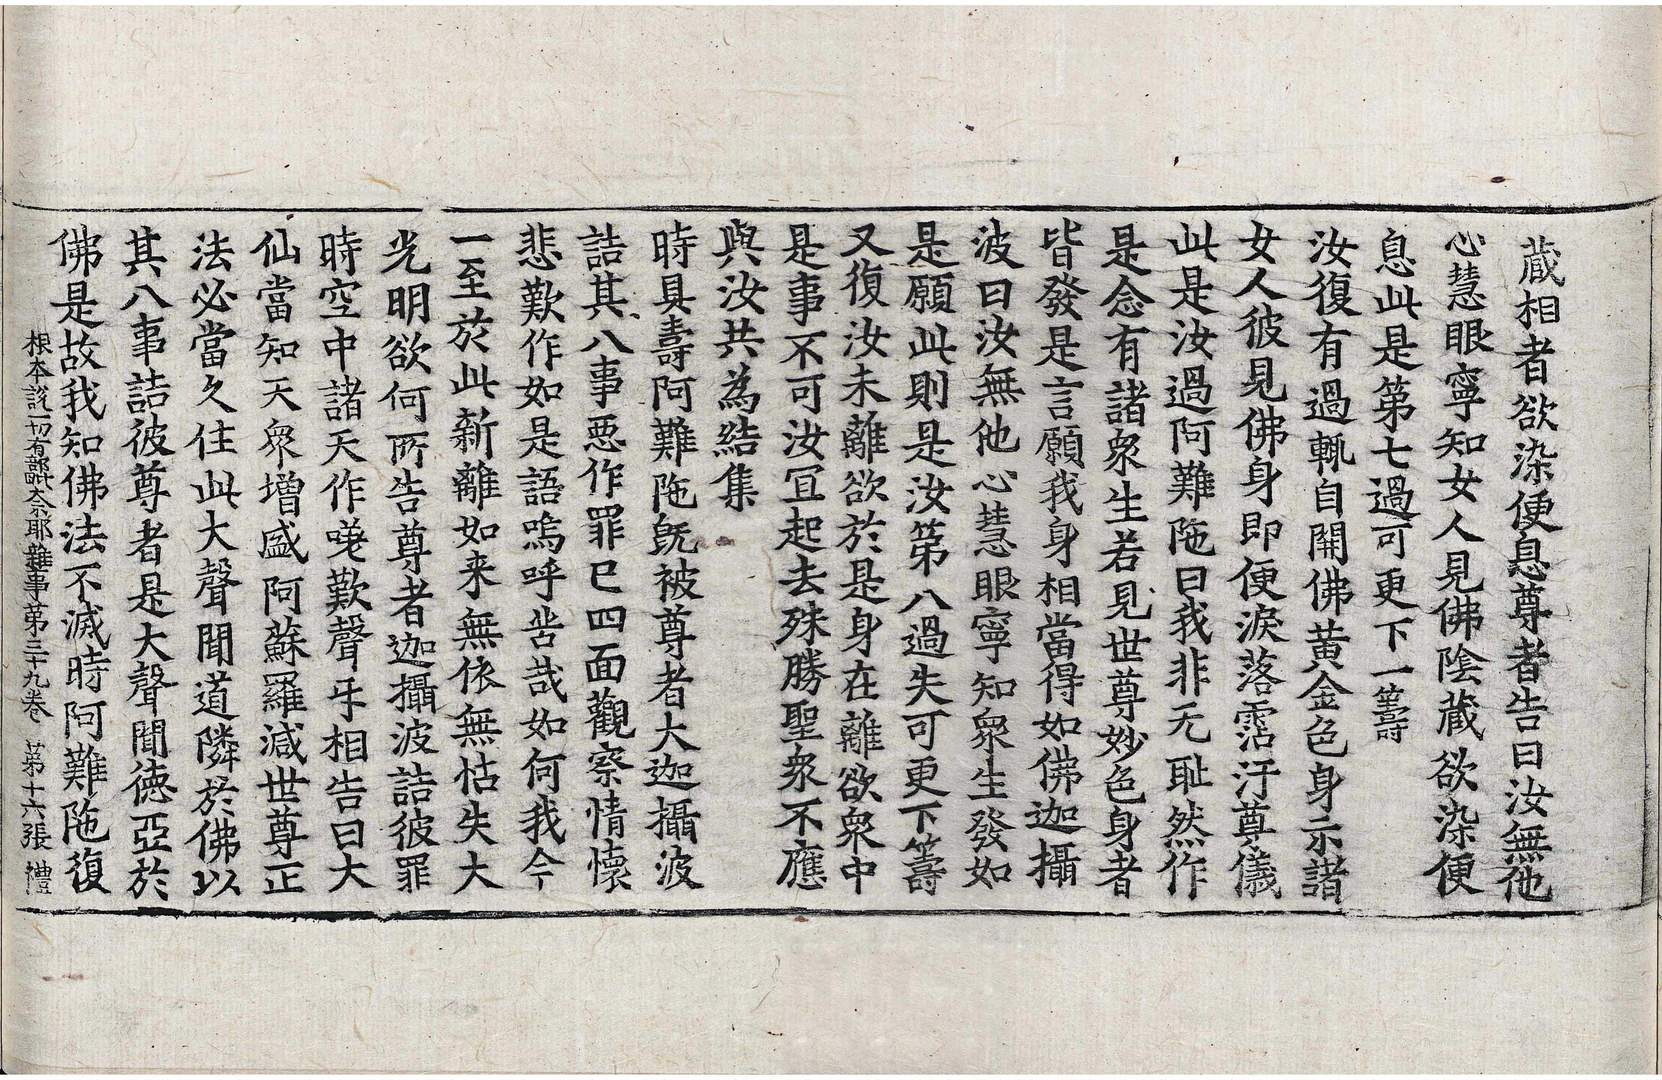 藏相者欲染便息尊者告曰汝無他
心慧眼寧知女人見佛陰藏欲染便
息此是第七過可更下一籌
汝復有過輒自開佛黃金色身示諸
女人彼見佛身即便淚落霑汙尊儀
此是汝過阿難陁曰我非无耻然作
是念有諸衆生若見世尊妙色身者
皆發是言願我身相當得如佛迦攝
波曰汝無他心慧眼寧知衆生發如
是願此則是汝第八過失可更下籌
又復汝未離欲於是身在離欲衆中
是事不可汝冝起去殊勝聖衆不應
與汝共為結集
時具壽阿難陁旣被尊者大迦攝波
詰其八事惡作罪已四面觀察情懷
悲歎作如是語嗚呼苦哉如何我今
一至於此新離如来無依無怙失大
光明欲何所告尊者迦攝波詰彼罪
時空中諸天作嗟歎聲㸦相告曰大
仙當知天衆增盛阿蘇羅減世尊正
法必當久住此大聲聞道隣於佛以
其八事詰彼尊者是大聲聞德亞於
佛是故我知佛法不滅時阿難陁復
根本說一切有部毗奈耶雜事第三十九卷 第十六張 禮